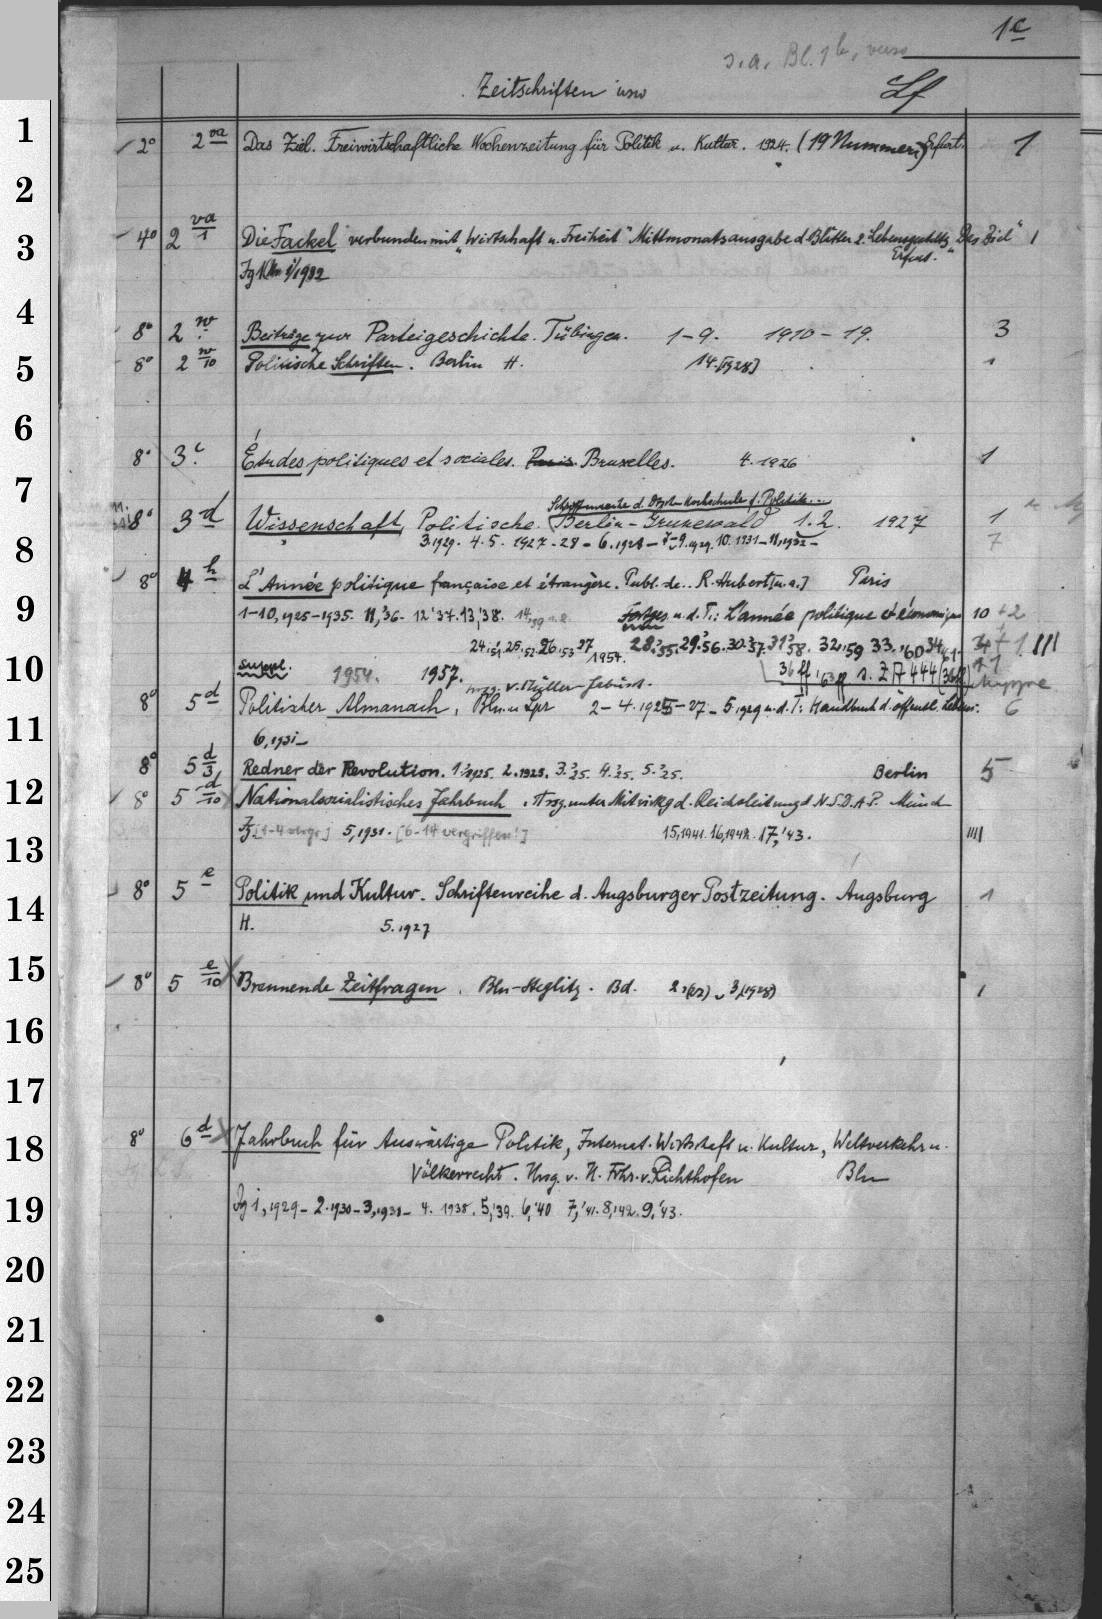 1c
s. a. Bl. 1b, verso
Zeitschriften usw
Lf
1
2° 2 va Das Ziel. Freiwirtschaftliche Wochenzeitung für Politik u. Kultur. 1924. (19 Nummern) Erfurt. 1
2
3
4° 2 va/1 Die Fackel verbunden mit "Wirtschaft u. Freiheit" Mittmonatsausgabe d. Blätter "Das Ziel" 1
Erfurt.
4
8° 2 w Beiträge zur Parteigeschichte. Tübingen. 1-9. 1910-19. 3
5
8° 2 w/10 Politische Schriften. Berlin H. 14.[1928] 1
6
8° 3 c Études politiques et sociales. Paris Bruxelles. 4. 1926 1
7
Schriftenreihe d. Dtsch. Hochschule f. Politik...
8° 3 d Wissenschaft, Politische. Berlin-Grunewald 1.2. 1927 1
3.1929. 4.5. 1927-28- 6.1928- 7-9.1929. 10.1931- 11,1932- 7
8
8° 4 h L'Année politique française et étrangère. Publ. de.. R. Hubert [u.a.] Paris
9
1-10,1925-1935. 11,'36. 12'37. 13,'38. u. d. T.: L'année politique et économique 10 + 2
24,'51. 25,'52. 26,'53 27/1954. 28,'55. 29,'56. 30,'57. 31,'58. 32,'59 33,'60 34,'61.
10
1954. 1957. 36 ff '63 ff s. Z 17 444 (36ff) Kappe
hrsg. v. Müller-Jabusch.
8° 5 d Politischer Almanach, Bln. u Lpz 2-4.1925-27- 5.1929 u. d. T: Handbuch d. öffentl. Lebens. 6
11
6,1931-
8° 5 d/3 Redner der Revolution. 1.1925. 2.1925. 3.'25. 4.'25. 5.'25. Berlin 5
12
8° 5 d/10 Nationalsozialistisches Jahrbuch. Hrsg. unter Mitwirkg d. Reichsleitung d. N.S.D.A.P. Münch
Jg. [1-4 vergr.] 5,1931. [6-14 vergriffen!] 15,1941. 16,1942. 17,'43. IIII
13
8° 5 e Politik und Kultur. Schriftenreihe d. Augsburger Postzeitung. Augsburg 1
14
H. 5.1927
15
8° 5 e/10 Brennende Zeitfragen. Bln-Steglitz. Bd. 2,(27) u 3,(1928) 1
16
17
8° 6 d Jahrbuch für Auswärtige Politik, Internat. Wirtschaft u. Kultur, Weltverkehr u.
18
Völkerrecht. Hrsg. v. H. Frhr. v. Richthofen Bln
19
Jg 1,1929- 2.1930- 3,1931- 4. 1938. 5,'39. 6,'40 7,'41. 8,'42. 9,'43.
20
21
22
23
24
25